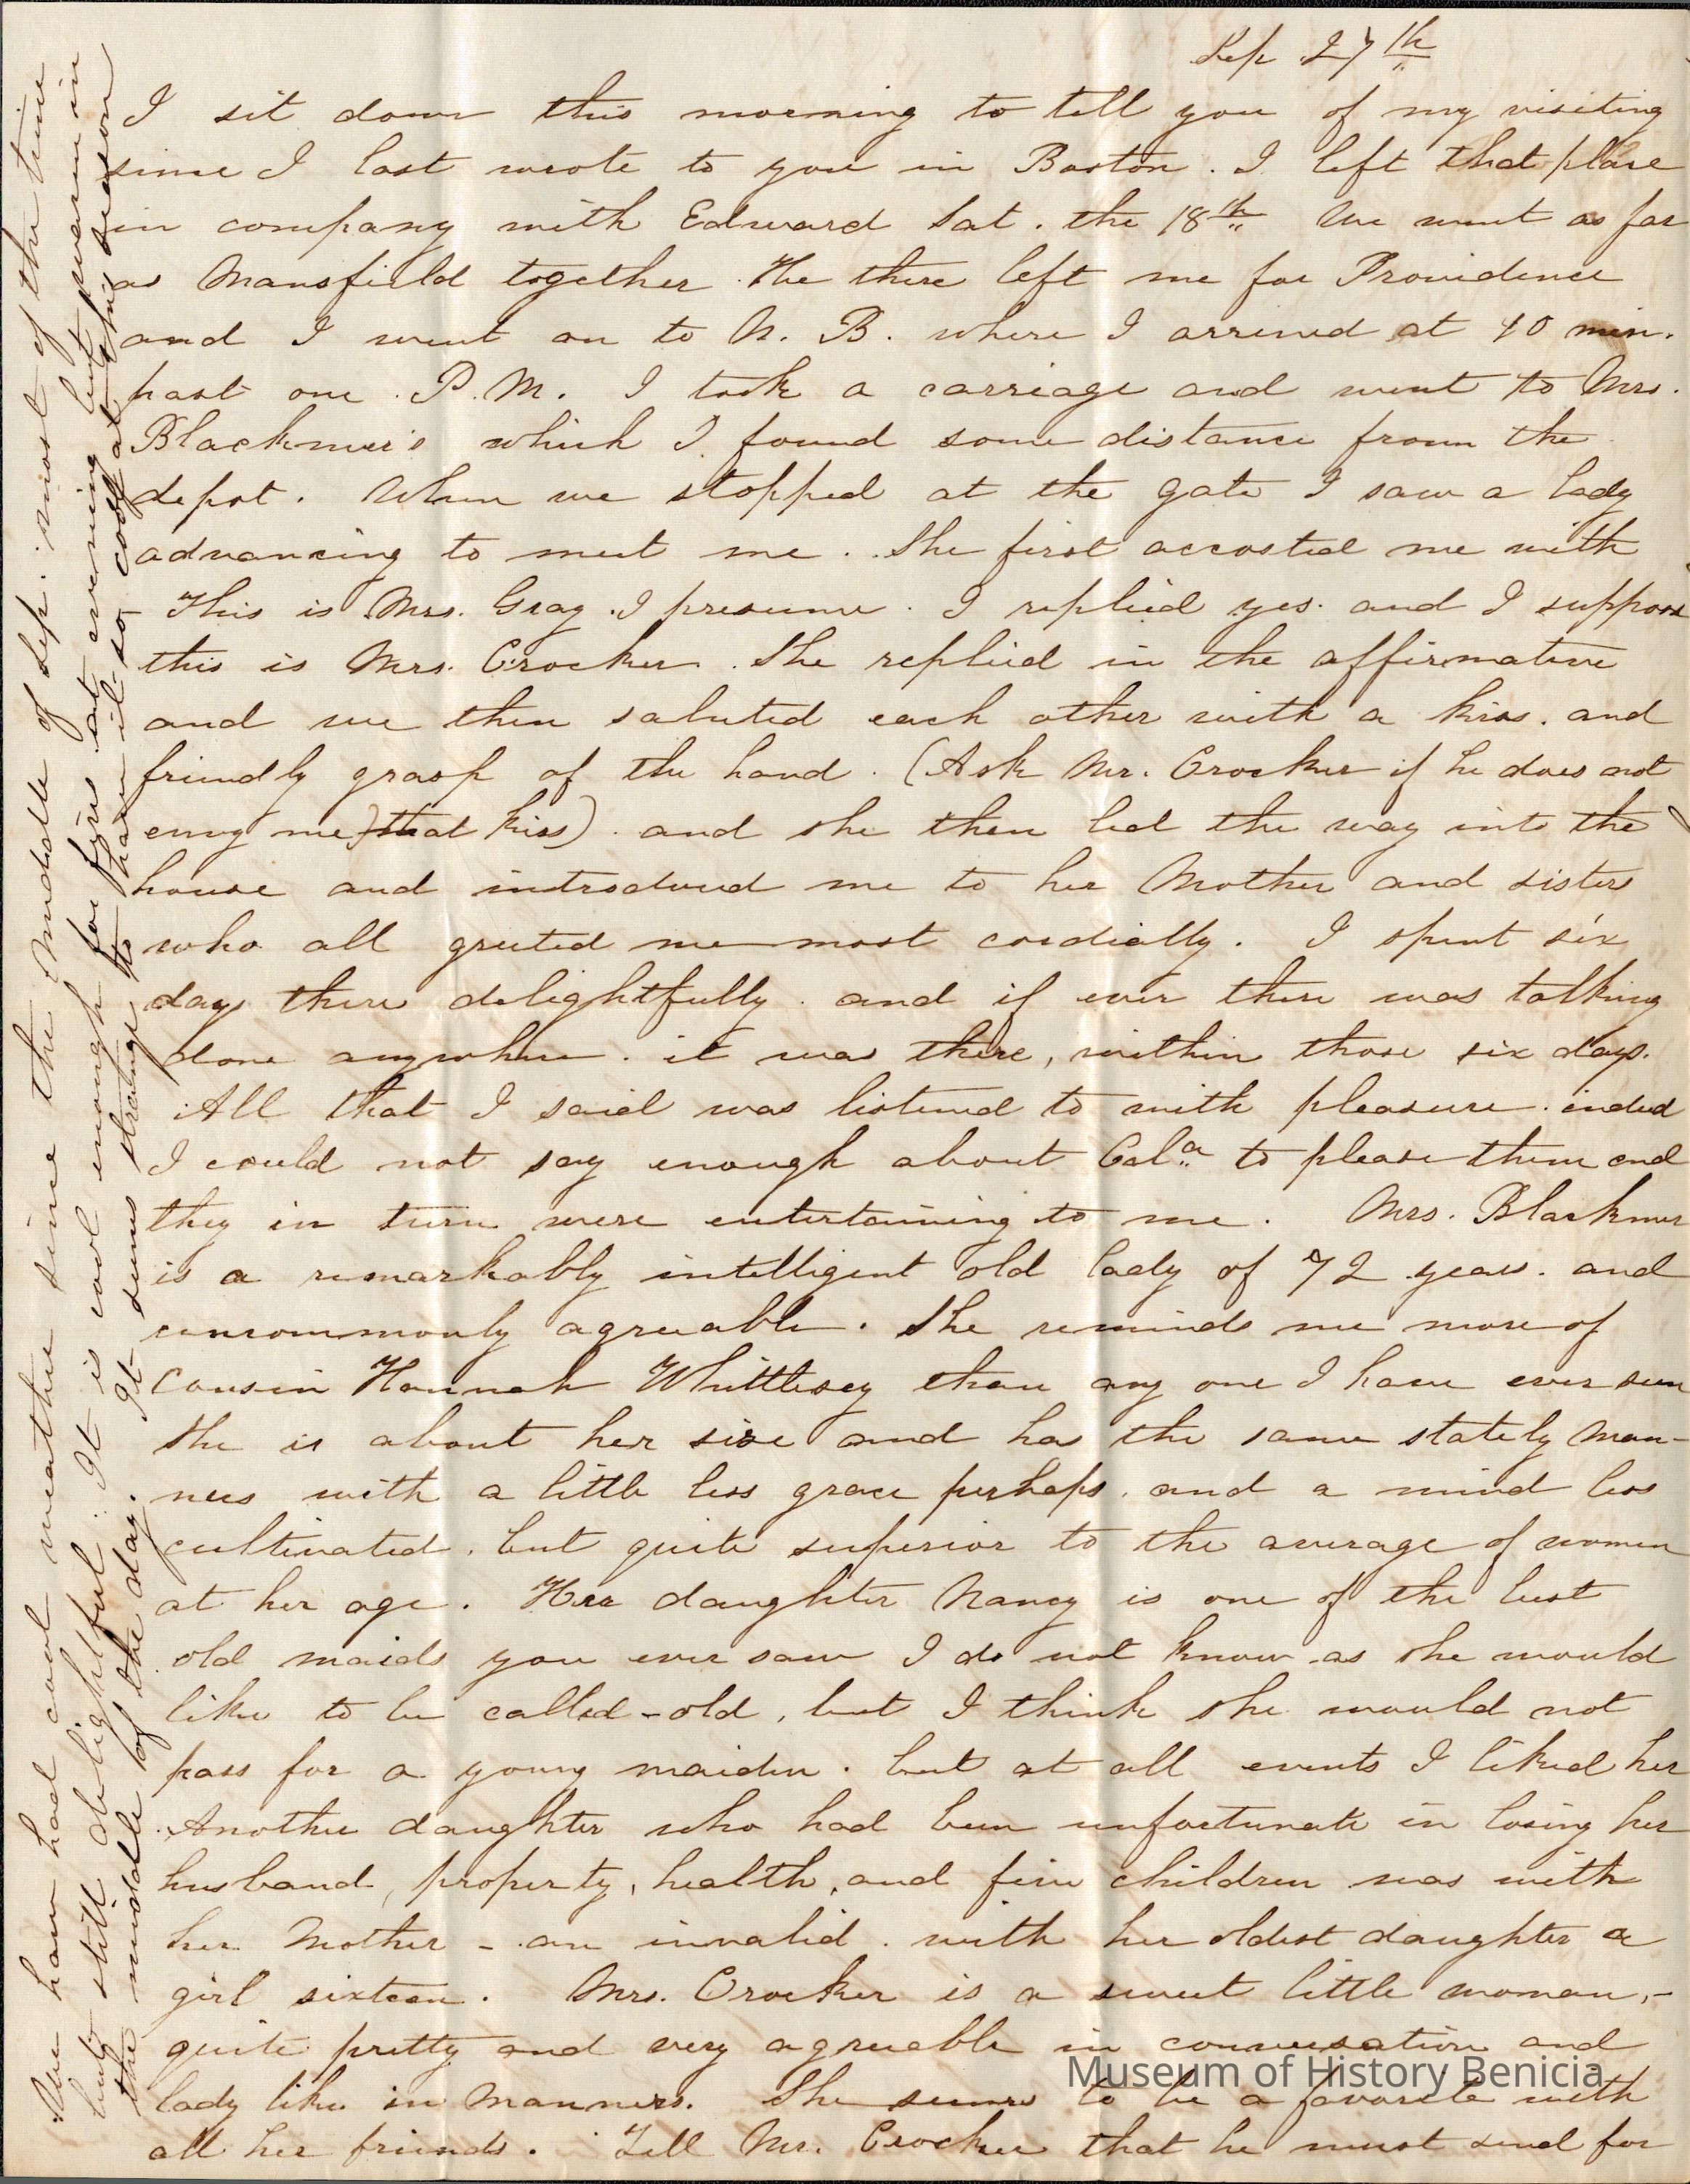 Sep 27th
I sit down this morning to tell you of my visiting
since I last wrote to you in Boston. I left that place
in company with Edward Sat. the 18th We went as far
as Mansfield together. He there left me for Providence
and I went on to N. B. where I arrived at 40 min.
past one P.M. I took a carriage and went to Mrs.
Blackmer's which I found some distance from the
depot. When we stopped at the gate I saw a lady
advancing to meet me. She first accosted me with
This is Mrs. Gray I presume. I replied yes. and I suppose
this is Mrs. Crocker. She replied in the affirmative
and we then saluted each other with a kiss. and
friendly grasp of the hand. (Ask Mr. Crocker if he does not
envy me) that kiss). and she then led the way into the
house and introduced me to her Mother and sisters
who all greeted me most cordially. I spent six
days there delightfully. and if ever there was talking
done anywhere. it was there, within those six days.
All that I said was listened to with pleasure. indeed
I could not say enough about Cala to please them and
they in turn were entertaining to me. Mrs. Blackmer
is a remarkably intelligent old lady of 72 years. and
uncommonly agreeable. She reminds me more of
Cousin Hannah Whittlesey than any one I have ever seen
She is about her size and has the same stately man-
ners with a little less grace perhaps. and a mind less
cultivated, but quite superior to the average of women
at her age. Her daughter Nancy is one of the best
old maids you ever saw I do not know as she would
like to be called - old, but I think she would not
pass for a young maiden. but at all events I liked her
Another daughter who had been unfortunate in losing her
husband, property, health, and five children was with
her Mother - an invalid. with her oldest daughter a
girl sixteen. Mrs. Crocker is a sweet little woman,-
quite pretty and very agreeable in conversation and
lady like in manners. She seems to be a favorite with
all her friends. Tell Mr. Crocker that he must send for
We have had cool weather since the middle of Sep. most of the time
but still delightful. It is cool enough for fires at evening but warm in
the middle of the day. It seems strange to have it so cool at this season
Museum of History Benicia